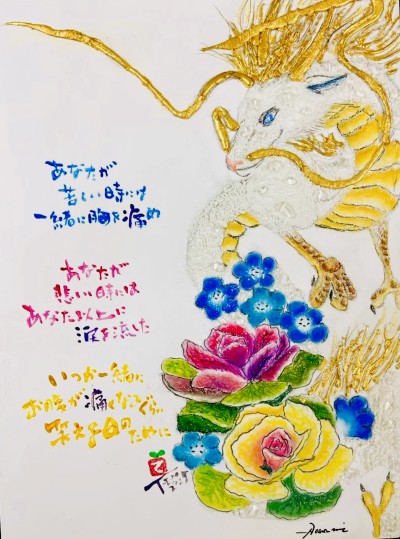 あなたが
苦しい時には
一緒に胸を痛め
あなたが
悲しい時には
あなた以上に
涙を流した
いつか一緒に
お腹が痛くなるぐらい
笑える日の
ために